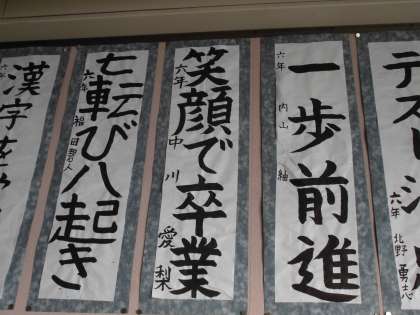 テスト
六年 北野 勇志
一歩前進
六年 内山 紬
笑顔で卒業
六年 中川 愛梨
七転び八起き
六年 福田碧人
漢字を
六年